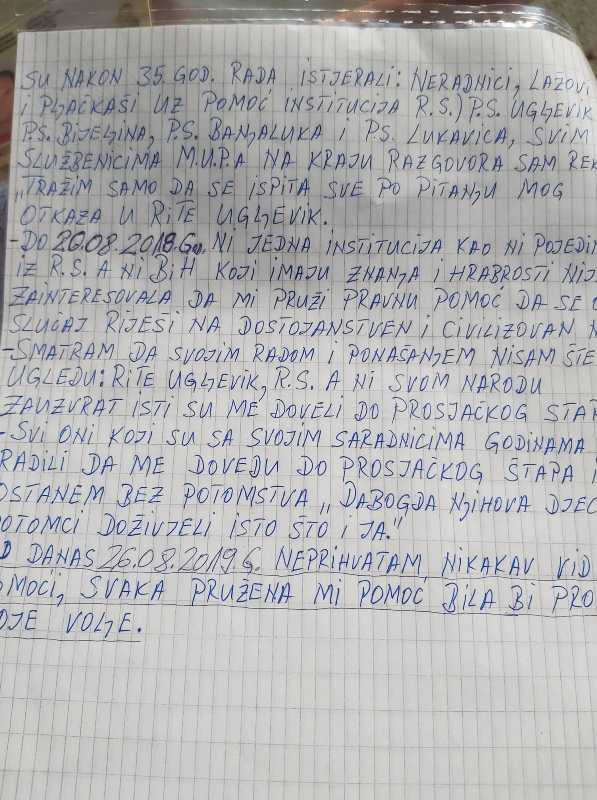 SU NAKON 35.GOD. RADA ISTJERALI: NERADNICI, LAŽOVI
I PLJAČKAŠI UZ POMOĆ INSTITUCIJA R.S.) P.S. UGLJEVIK
P.S. BIJELJINA, P.S. BANJALUKA I P.S. LUKAVICA, SVIM
SLUŽBENICIMA M.U.P.A NA KRAJU RAZGOVORA SAM REK
„TRAŽIM SAMO DA SE ISPITA SVE PO PITANJU MOG
OTKAZA U RITE UGLJEVIK.
-DO 20.08.2019.G. NI JEDNA INSTITUCIJA KAO NI POJEDIN
IZ R.S. A NI BIH KOJI IMAJU ZNANJA I HRABROSTI NIJ
ZAINTERESOVALA DA MI PRUŽI PRAVNU POMOĆ DA SE O
SLUČAJ RIJEŠI NA DOSTOJANSTVEN I CIVILIZOVAN N
-SMATRAM DA SVOJIM RADOM I PONAŠANJEM NISAM ŠTE
UGLEDU: RITE UGLJEVIK, R.S. A NI SVOM NARODU
ZAUZVRAT ISTI SU ME DOVELI DO PROSJAČKOG ŠTAP
-SVI ONI KOJI SU SA SVOJIM SARADNICIMA GODINAMA
RADILI DA ME DOVEDU DO PROSJAČKOG ŠTAPA I
OSTANEM BEZ POTOMSTVA „DABOGDA NJIHOVA DJEC
POTOMCI DOŽIVJELI ISTO ŠTO I JA."
D DANAS 26.08.2019.G. NEPRIHVATAM NIKAKAV VID
OMOĆI, SVAKA PRUŽENA MI POMOĆ BILA BI PRO
OJE VOLJE.